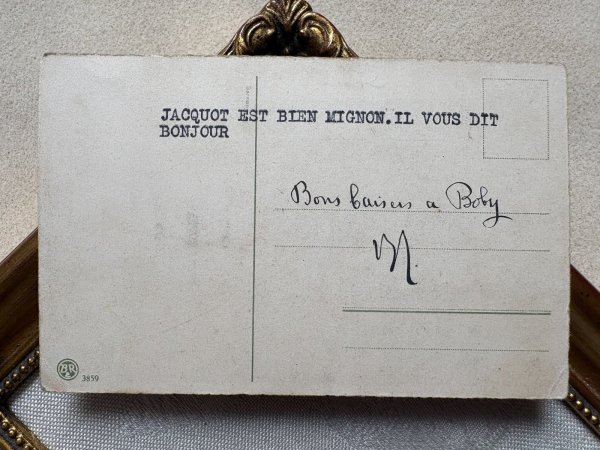 JACQUOT EST BIEN MIGNON.IL VOUS DIT
BONJOUR
Bons baisers a Boby
M.
3859